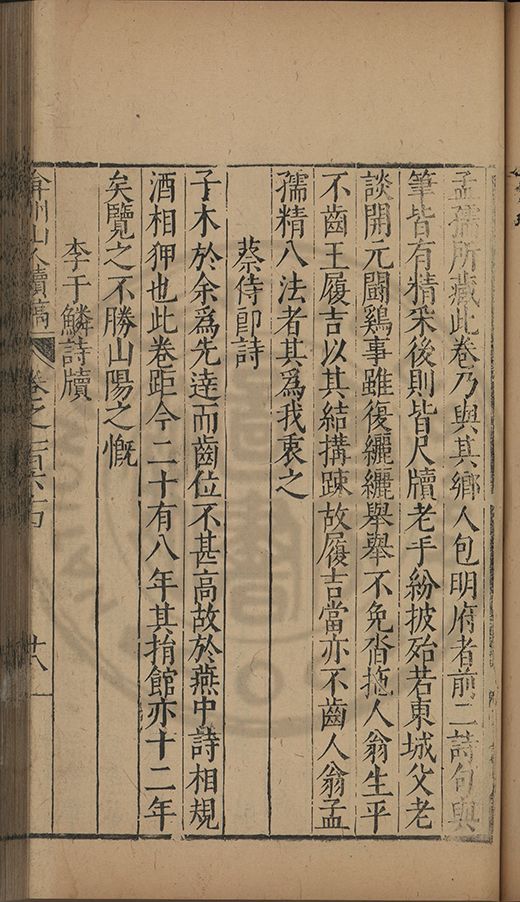 孟孺所藏此卷乃與其鄉人包明府者前二詩句與
筆皆有精采後則皆尺牘老手紛披殆若東城父老
談開元鬪鷄事雖復纚纚舉舉不免沓拖人翁生平
不齒王履吉以其結搆踈故履吉當亦不齒人翁孟
孺精八法者其爲我衷之
蔡侍郎詩
子木於余爲先達而齒位不甚高故於燕中詩相規
酒相狎也此卷距今二十有八年其捐館亦十二年
矣覽之不勝山陽之慨
李于鱗詩牘
弇州山人續稿 卷之一百六十四 十八